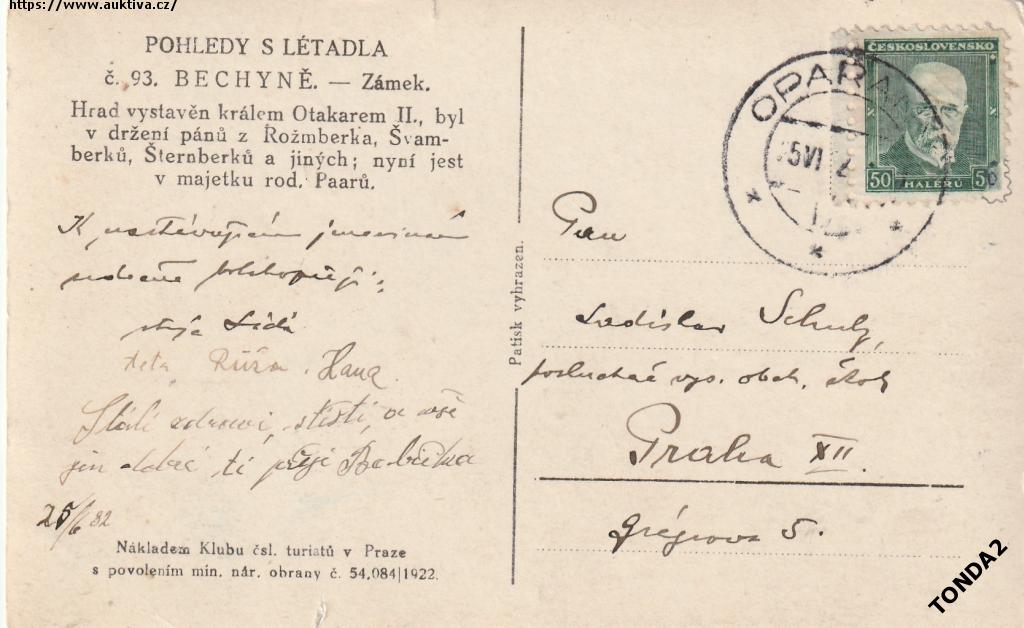 https://www.auktiva.cz/
POHLEDY S LÉTADLA
č. 93. BECHYNĚ. — Zámek.
Hrad vystavěn králem Otakarem II., byl
v držení pánů z Rožmberka, Švam-
berků, Šternberků a jiných; nyní jest
v majetku rod. Paarů.
K nastávajícím jmeninám
srdečně blahopřejí:
strýc Láďa
teta Růža. Hana.
Stálé zdraví, štěstí, a vše
jen dobré ti přeje Babička
25/6 32
Nákladem Klubu čsl. turistů v Praze
s povolením min. nár. obrany č. 54.084|1922.
Patisk vyhrazen.
ČESKOSLOVENSKO
50 HALÉŘŮ 50
OPAŘA
5 VI
Pan
Ladislav Schulz,
posluchač vys. obch. škol
Praha XII
Grégrova 5.
TONDA2